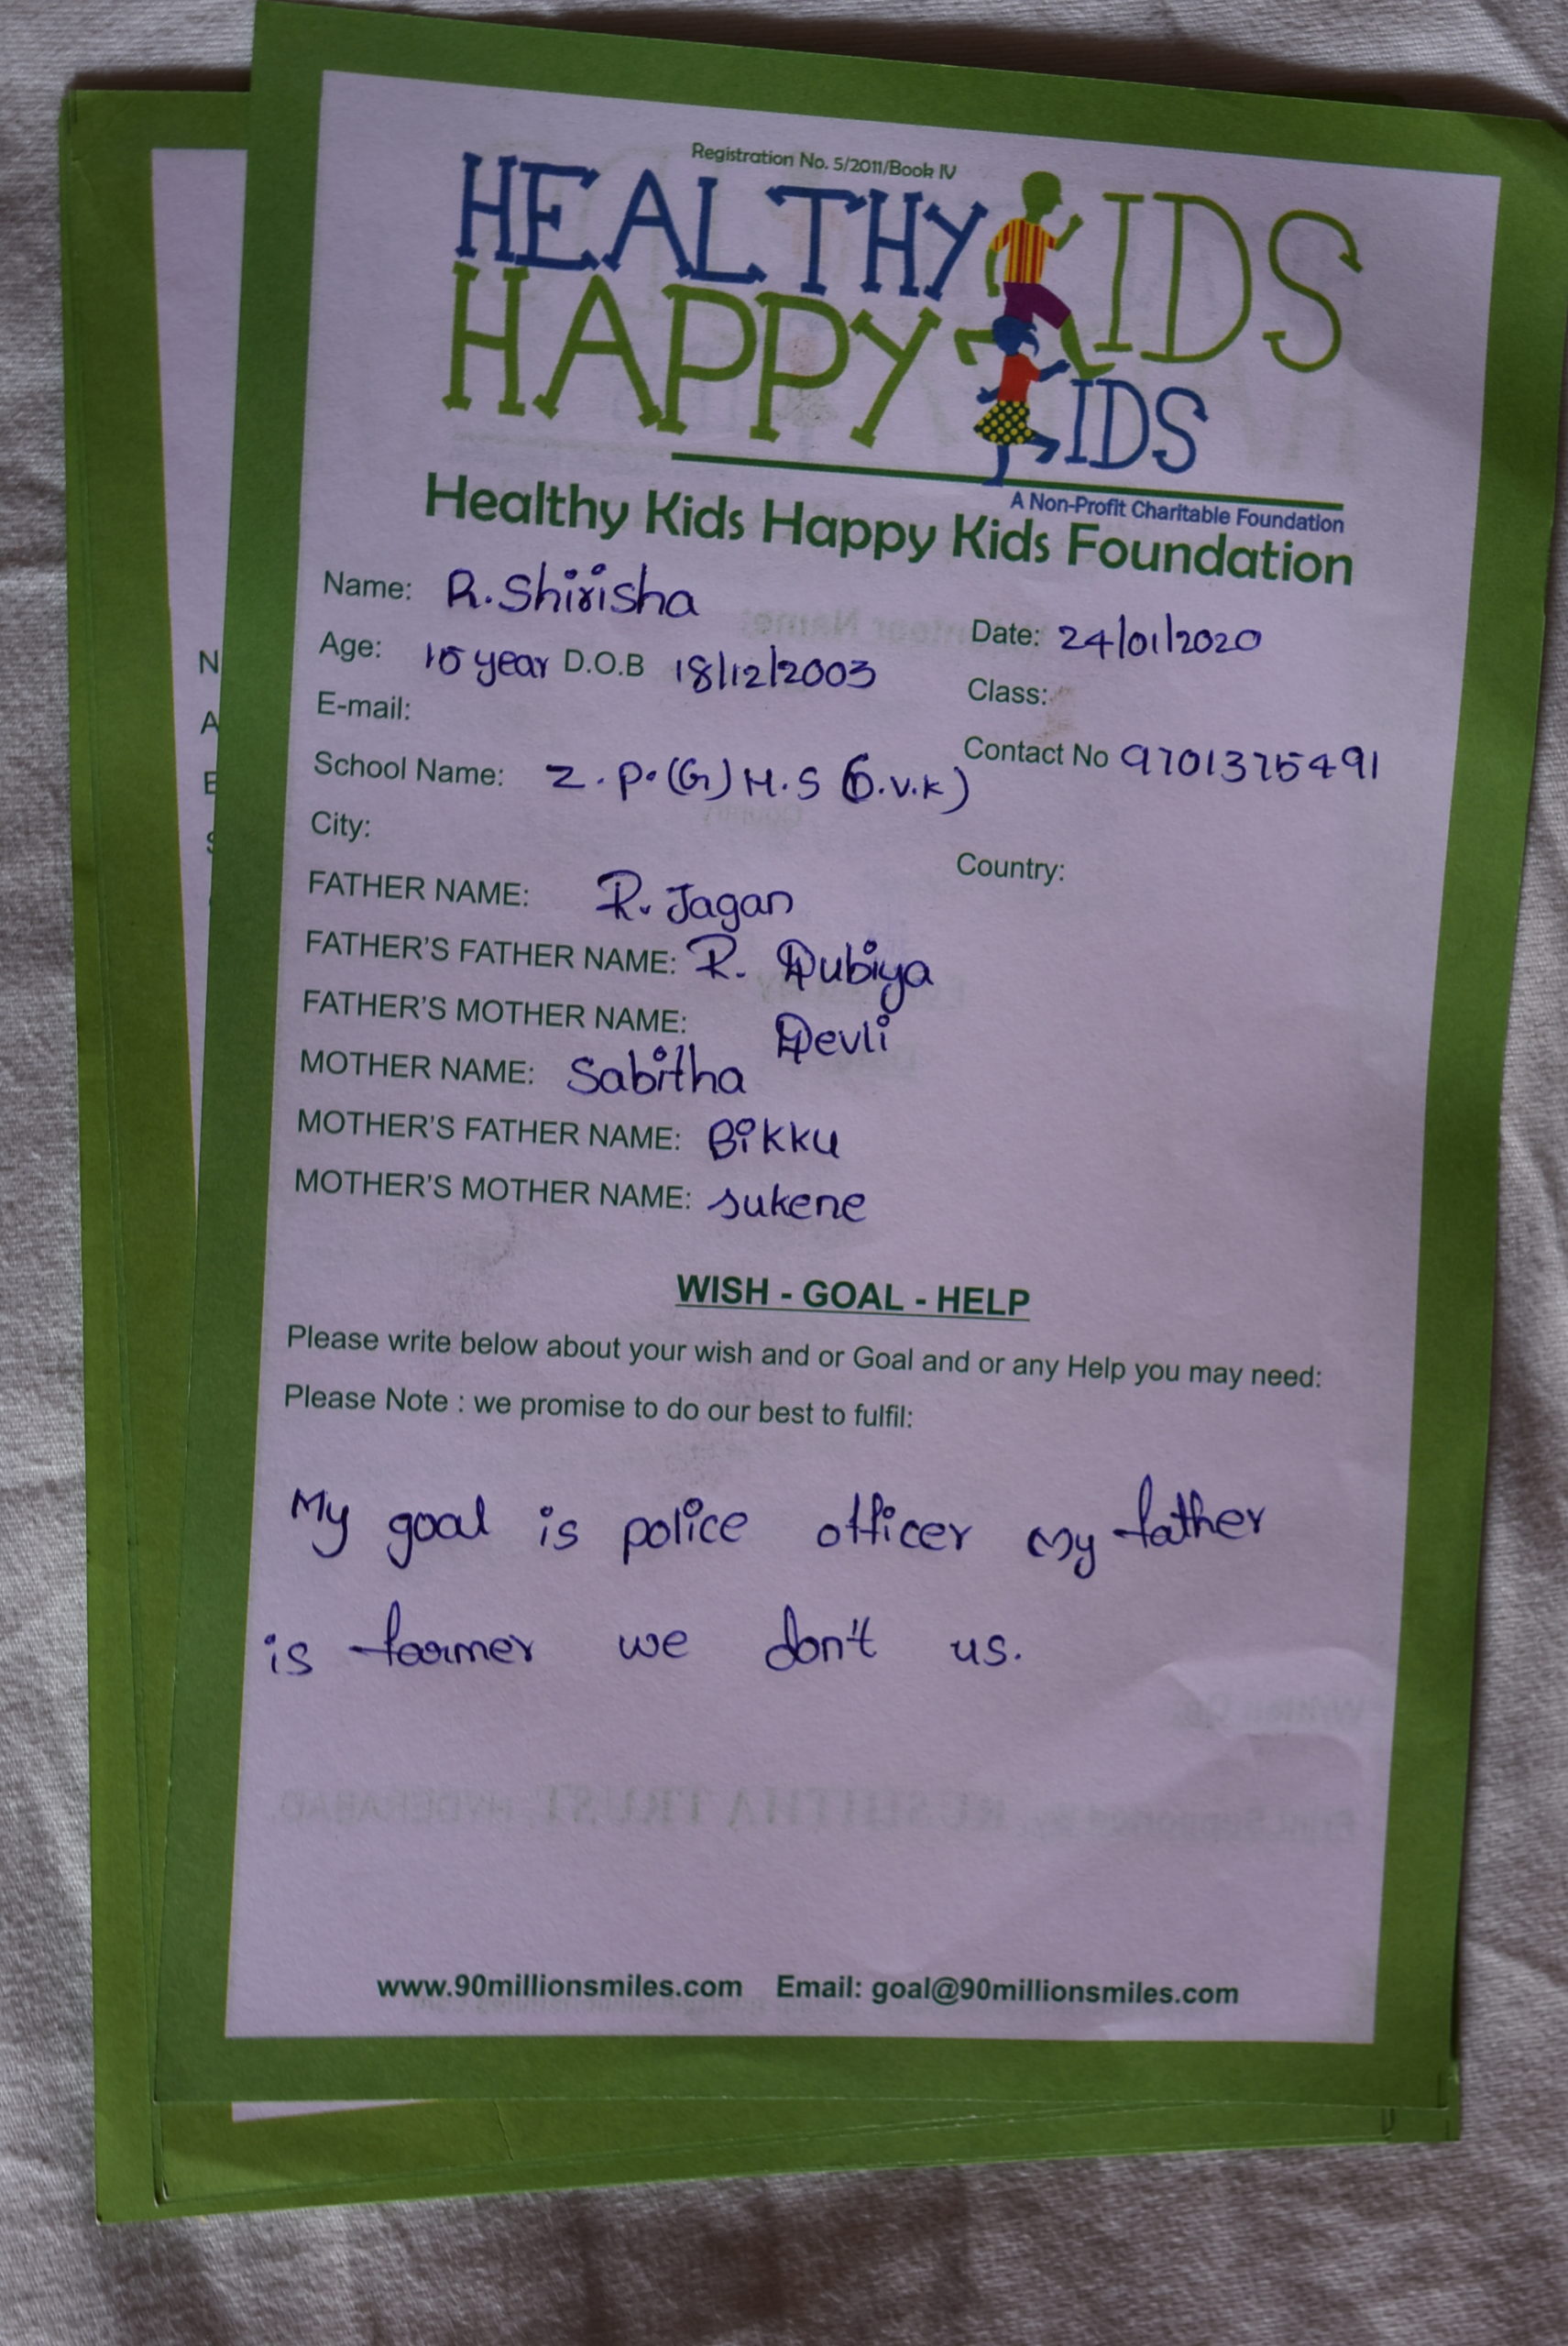 Registration No. 5/2011/Book IV
HEALTHY KIDS
HAPPY KIDS
A Non-Profit Charitable Foundation
Healthy Kids Happy Kids Foundation
Name: R.Shirisha
Date: 24/01/2020
Age: 15 year D.O.B 18/12/2003
Class:
E-mail:
Contact No 9701375491
School Name: Z.P.(G) H.S (D.V.K)
City:
Country:
FATHER NAME: R. Jagan
FATHER'S FATHER NAME: R. Dubiya
FATHER'S MOTHER NAME: Devli
MOTHER NAME: Sabitha
MOTHER'S FATHER NAME: Bikku
MOTHER'S MOTHER NAME: sukene
WISH - GOAL - HELP
Please write below about your wish and or Goal and or any Help you may need:
Please Note : we promise to do our best to fulfil:
My goal is police officer my father
is farmer we don't us.
www.90millionsmiles.com Email: goal@90millionsmiles.com
N
A
E
S